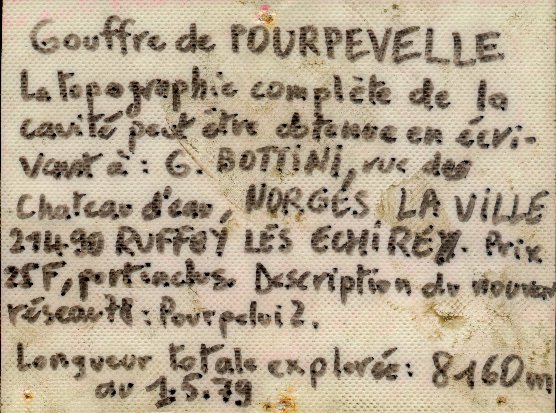 Gouffre de POURPEVELLE
La topographie complète de la
cavité peut être obtenue en écri-
vant à : G. BOTTINI, rue des
Chateau d'eau, NORGES LA VILLE
21490 RUFFEY LES ECHIREY. Prix
25F, port inclus. Description du nouveau
réseau : Pourpelui 2.
Longueur totale explorée : 8160m
au 1.5.79